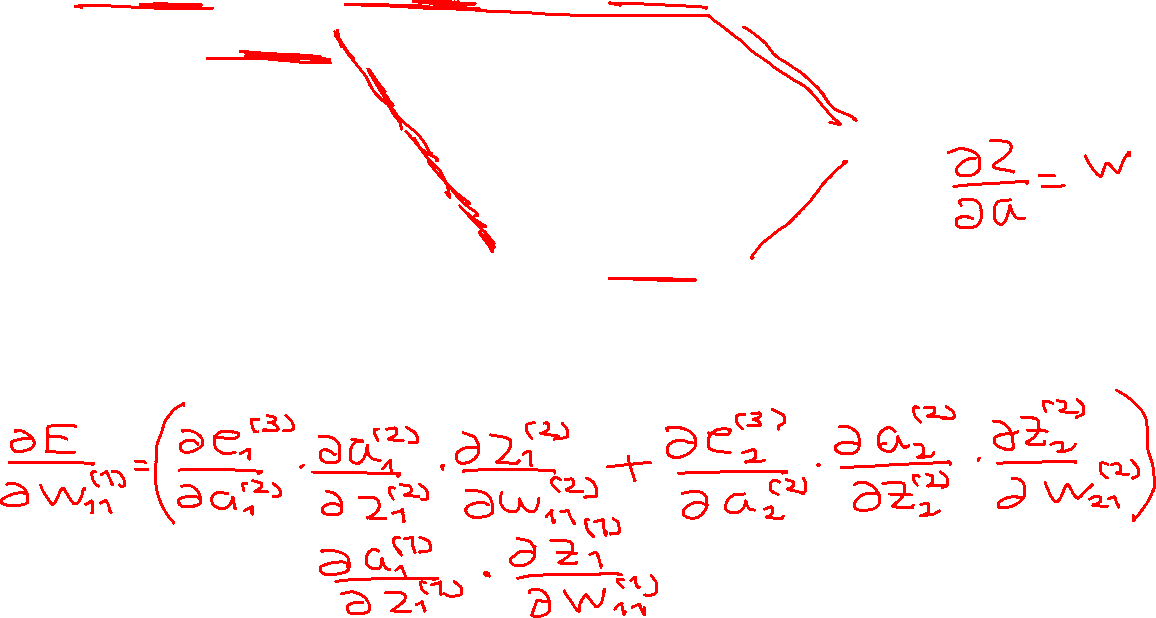 ∂z/∂a = w
∂E/∂w₁₁⁽¹⁾ = (∂e₁⁽³⁾/∂a₁⁽²⁾ · ∂a₁⁽²⁾/∂z₁⁽²⁾ · ∂z₁⁽²⁾/∂w₁₁⁽²⁾ + ∂e₂⁽³⁾/∂a₂⁽²⁾ · ∂a₂⁽²⁾/∂z₂⁽²⁾ · ∂z₂⁽²⁾/∂w₂₁⁽²⁾)
∂a₁⁽¹⁾/∂z₁⁽¹⁾ · ∂z₁⁽¹⁾/∂w₁₁⁽¹⁾